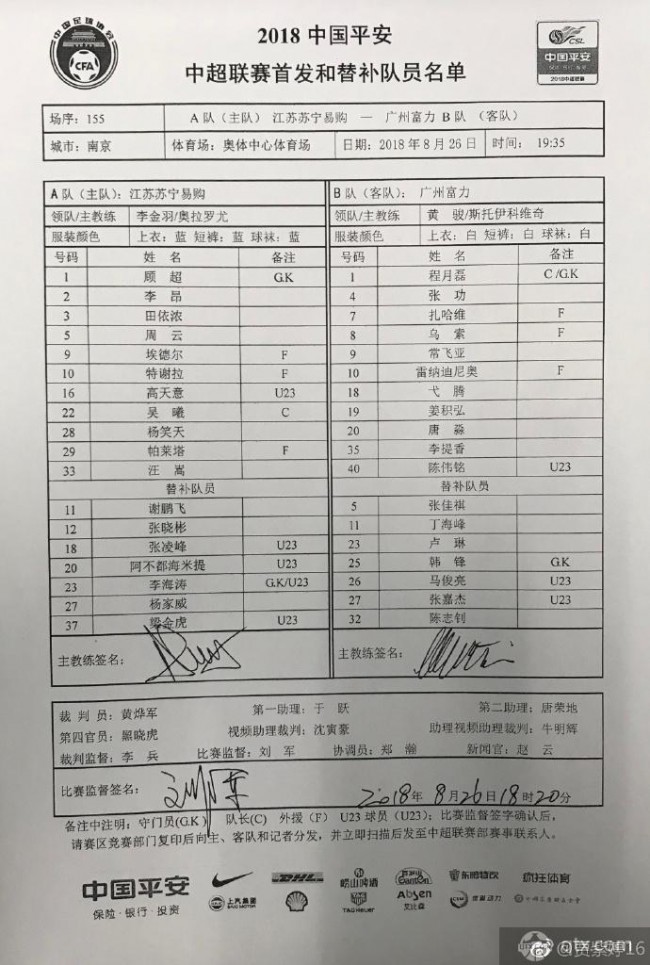 中国足球协会
CFA
2018 中国平安
中超联赛首发和替补队员名单
CSL
中国平安
2018中超联赛
场序：155 A 队（主队） 江苏苏宁易购 — 广州富力 B 队 （客队）
城市：南京 体育场：奥体中心体育场 日期：2018 年 8 月 26 日 时间： 19:35
A 队（主队）：江苏苏宁易购 B 队（客队）： 广州富力
领队/主教练 李金羽/奥拉罗尤 领队/主教练 黄 骏/斯托伊科维奇
服装颜色 上衣：蓝 短裤：蓝 球袜：蓝 服装颜色 上衣：白 短裤：白 球袜：白
号码 姓 名 备注 号码 姓 名 备注
1 顾 超 G.K 1 程月磊 C /G.K
2 李 昂 4 张 功
3 田依浓 7 扎哈维 F
5 周 云 8 乌 索 F
9 埃德尔 F 9 常飞亚
10 特谢拉 F 10 雷纳迪尼奥 F
16 高天意 U23 18 弋 腾
22 吴 曦 C 19 姜积弘
28 杨笑天 20 唐 淼
29 帕莱塔 F 35 李提香
33 汪 嵩 40 陈伟铭 U23
替补队员 替补队员
11 谢鹏飞 5 张佳祺
12 张晓彬 11 丁海峰
18 张凌峰 U23 23 卢 琳
20 阿不都海米提 U23 25 韩 锋 G.K
23 李海涛 G.K/U23 26 马俊亮 U23
27 杨家威 27 张嘉杰 U23
37 梁金虎 U23 32 陈志钊
主教练签名： 主教练签名：
裁 判 员：黄烨军 第一助理：于 跃 第二助理：唐荣地
第四官员：顾晓虎 视频助理裁判：沈寅豪 助理视频助理裁判：牛明辉
裁判监督：李 兵 比赛监督：刘 军 协调员：郑 瀚 新闻官：赵 云
比赛监督签名： 刘军 2018年 8月26日18时20分
备注中注明：守门员(G.K) 队长(C) 外援（F） U23 球员（U23）；比赛监督签字确认后，
请赛区竞赛部门复印后向主、客队和记者分发，并立即扫描后发至中超联赛部赛事联系人。
中国平安
保险·银行·投资
DHL
崂山啤酒
东鹏特饮
疯狂体育
上汽集团
TAG Heuer
Absen
艾比森